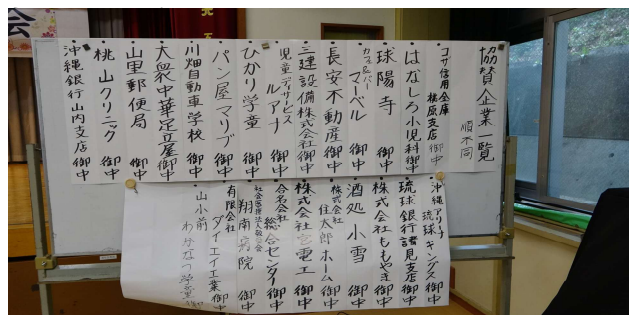 協賛企業一覧
順不同
コザ信用金庫
桃原支店 御中
はなしろ小児科 御中
球陽寺 御中
カフェ&バー
マーベル 御中
長安不動産 御中
三建設備株式会社 御中
児童デイサービス
ルアナ 御中
ひかり学童 御中
パン屋マリブ 御中
川畑自動車学校 御中
大衆中華足立屋 御中
山里郵便局 御中
桃山クリニック 御中
沖縄銀行山内支店 御中
沖縄アリーナ
琉球キングス 御中
琉球銀行諸見支店 御中
株式会社ももやき 御中
酒処 小雪 御中
株式会社
住太郎ホーム 御中
株式会社 電工 御中
合名会社
総合センター 御中
社会医療法人敬愛会
翔南病院 御中
有限会社
ダイエイ工業 御中
山小前
会